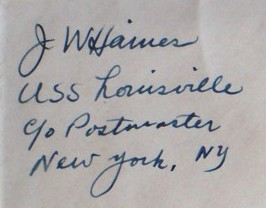 J W Haines
USS Louisville
c/o Postmaster
New York, NY